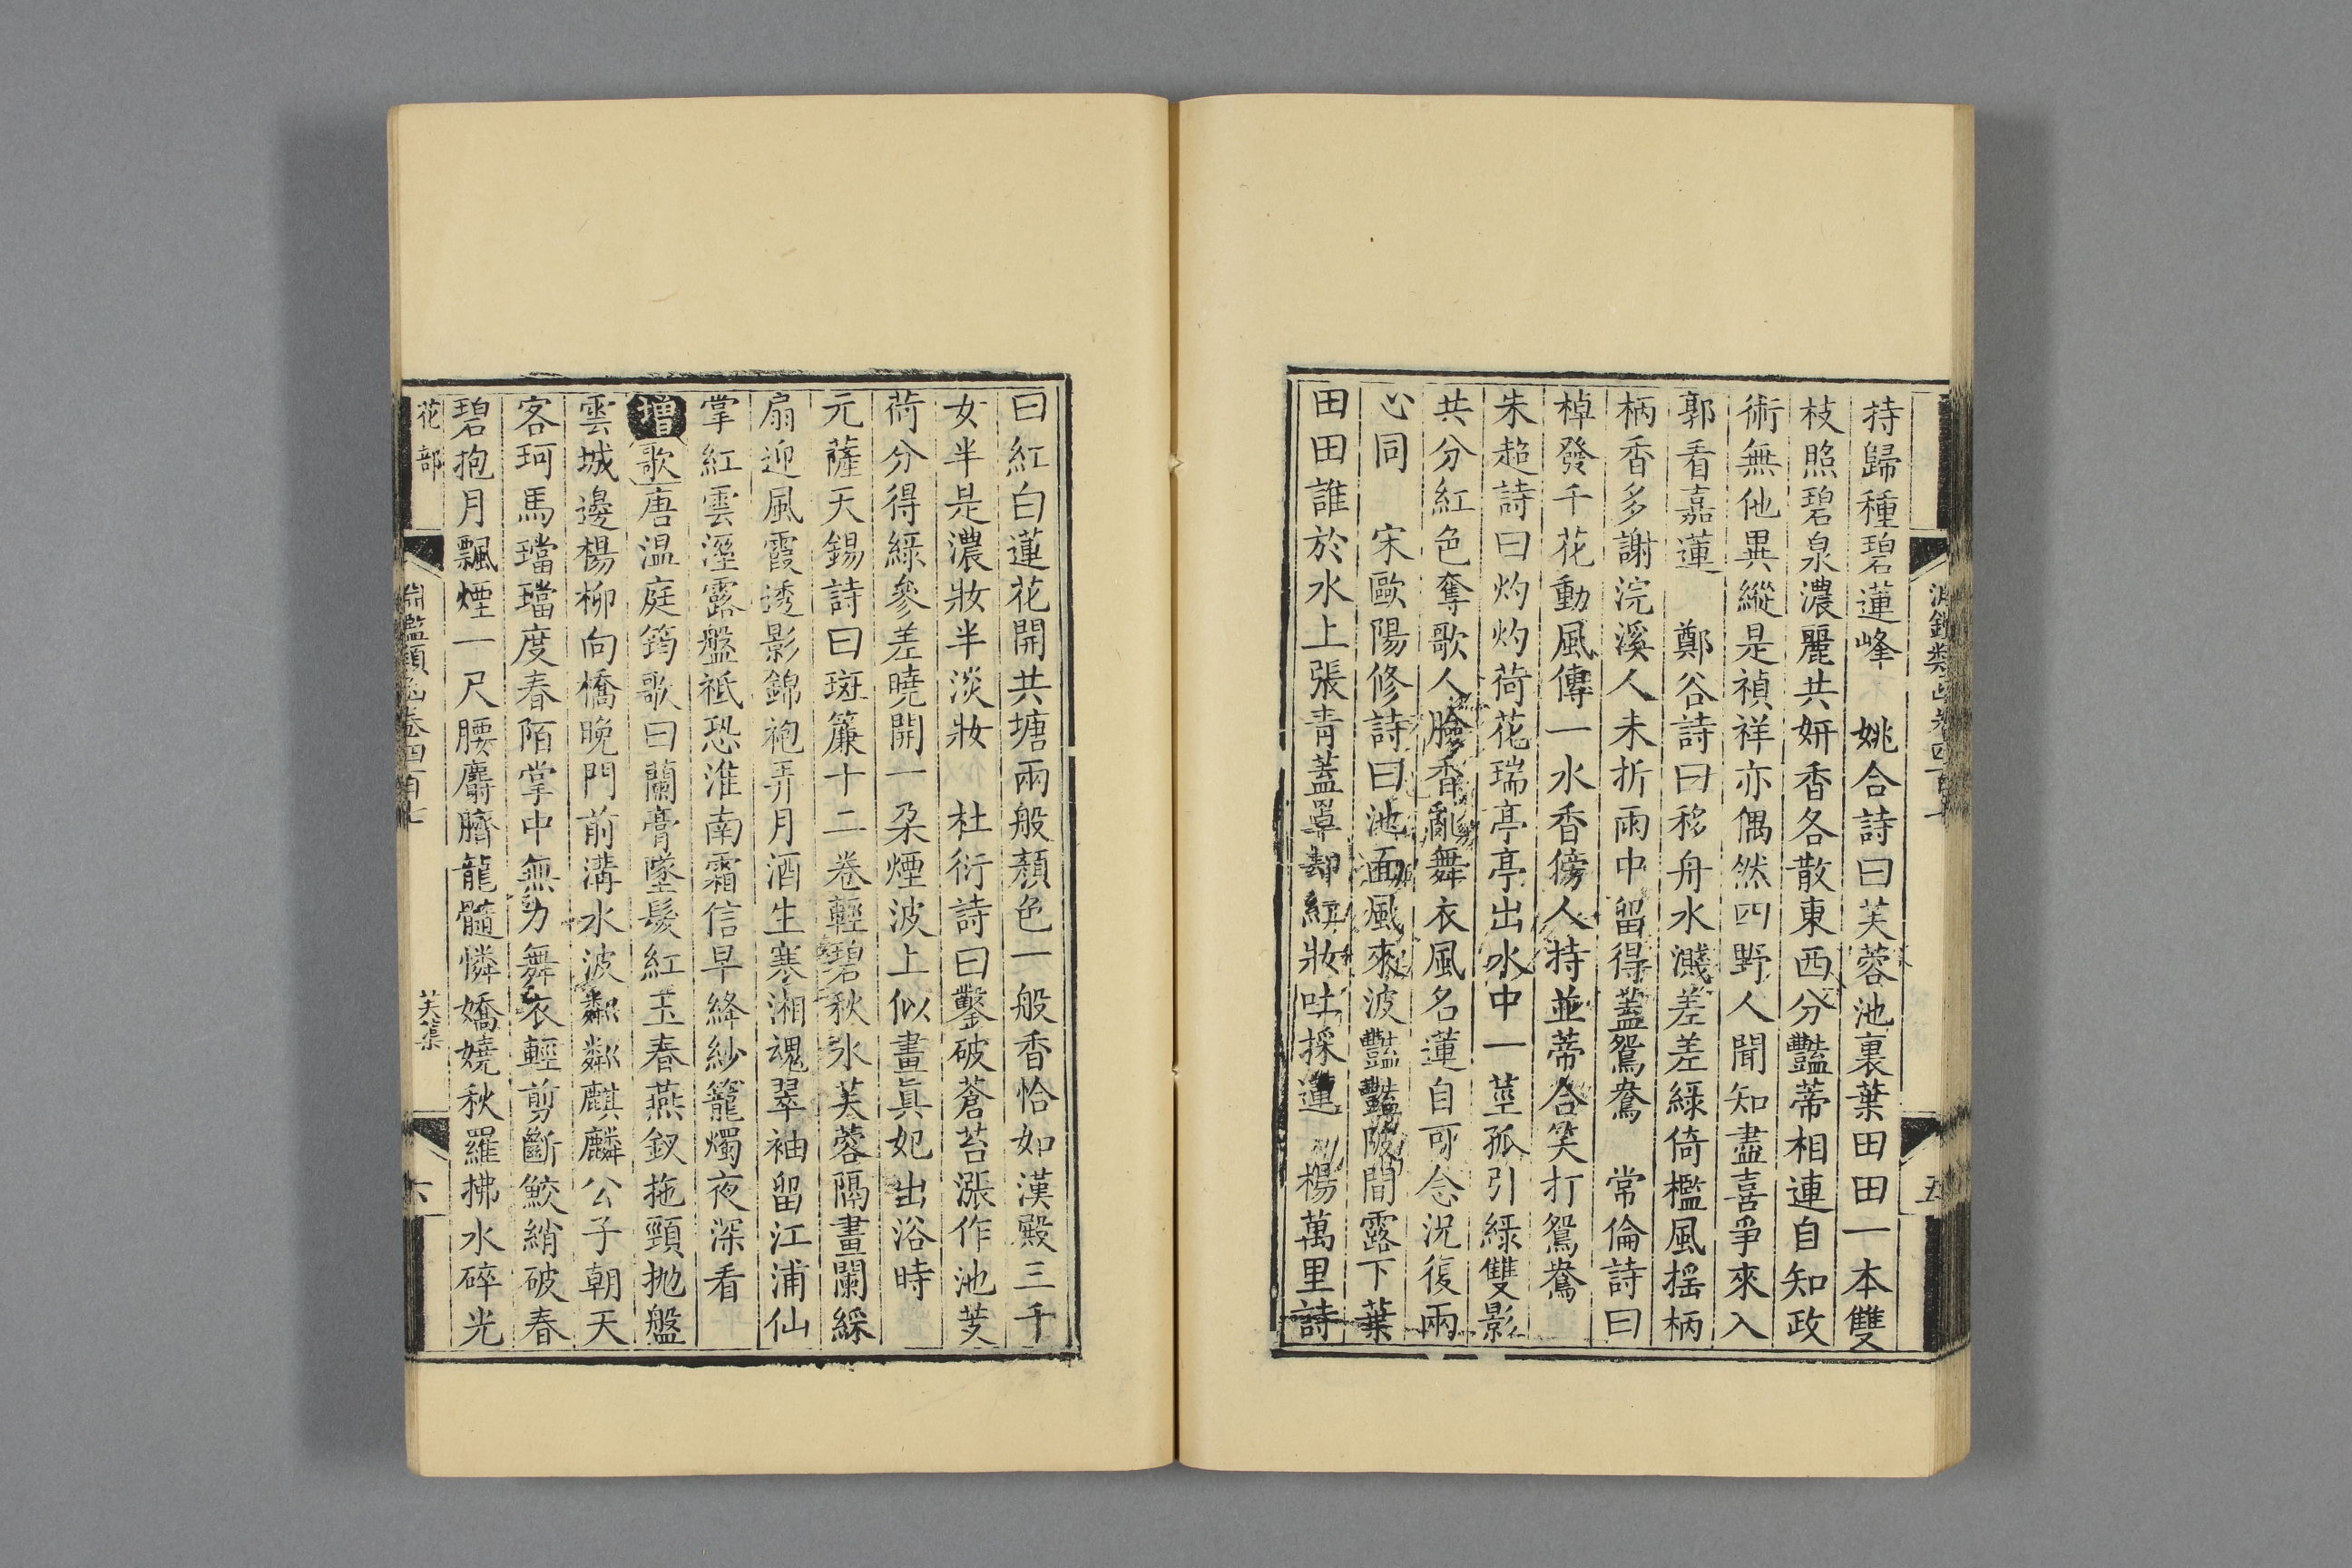 持歸種碧蓮峰　姚合詩曰芙蓉池裏葉田田一本雙
枝照碧泉濃麗共妍香各散東西分豔蒂相連自知政
術無他異縱是禎祥亦偶然四野人聞知盡喜爭來入
郭看嘉蓮　鄭谷詩曰移舟水濺差差綠倚檻風搖柄
柄香多謝浣溪人未折雨中留得蓋鴛鴦　常倫詩曰
棹發千花動風傳一水香傍人持並蒂含笑打鴛鴦
朱超詩曰灼灼荷花瑞亭亭出水中一莖孤引綠雙影
共分紅色奪歌人臉香亂舞衣風名蓮自可念況復兩
心同　宋歐陽修詩曰池面風來波豔豔陂間露下葉
田田誰於水上張青蓋罩却紅妝吐採蓮　楊萬里詩
曰紅白蓮花開共塘兩般顏色一般香恰如漢殿三千
女半是濃妝半淡妝　杜衍詩曰鑿破蒼苔漲作池芰
荷分得綠參差曉開一朶煙波上似畫眞妃出浴時
元薩天錫詩曰斑簾十二卷輕碧秋水芙蓉隔畫闌綵
扇迎風霞透影錦袍弄月酒生寒湘魂翠袖留江浦仙
掌紅雲溼露盤祗恐淮南霜信早絳紗籠燭夜深看
增歌唐温庭筠歌曰蘭膏墜髮紅玉春燕釵拖頸抛盤
雲城邊楊柳向橋晚門前溝水波粼粼麒麟公子朝天
客珂馬璫璫度春陌掌中無力舞衣輕剪斷鮫綃破春
碧抱月飄煙一尺腰麝臍龍髓憐嬌嬈秋羅拂水碎光
花部
淵鑑類函卷四百七
芙蕖
六
淵鑑類函卷四百七
五